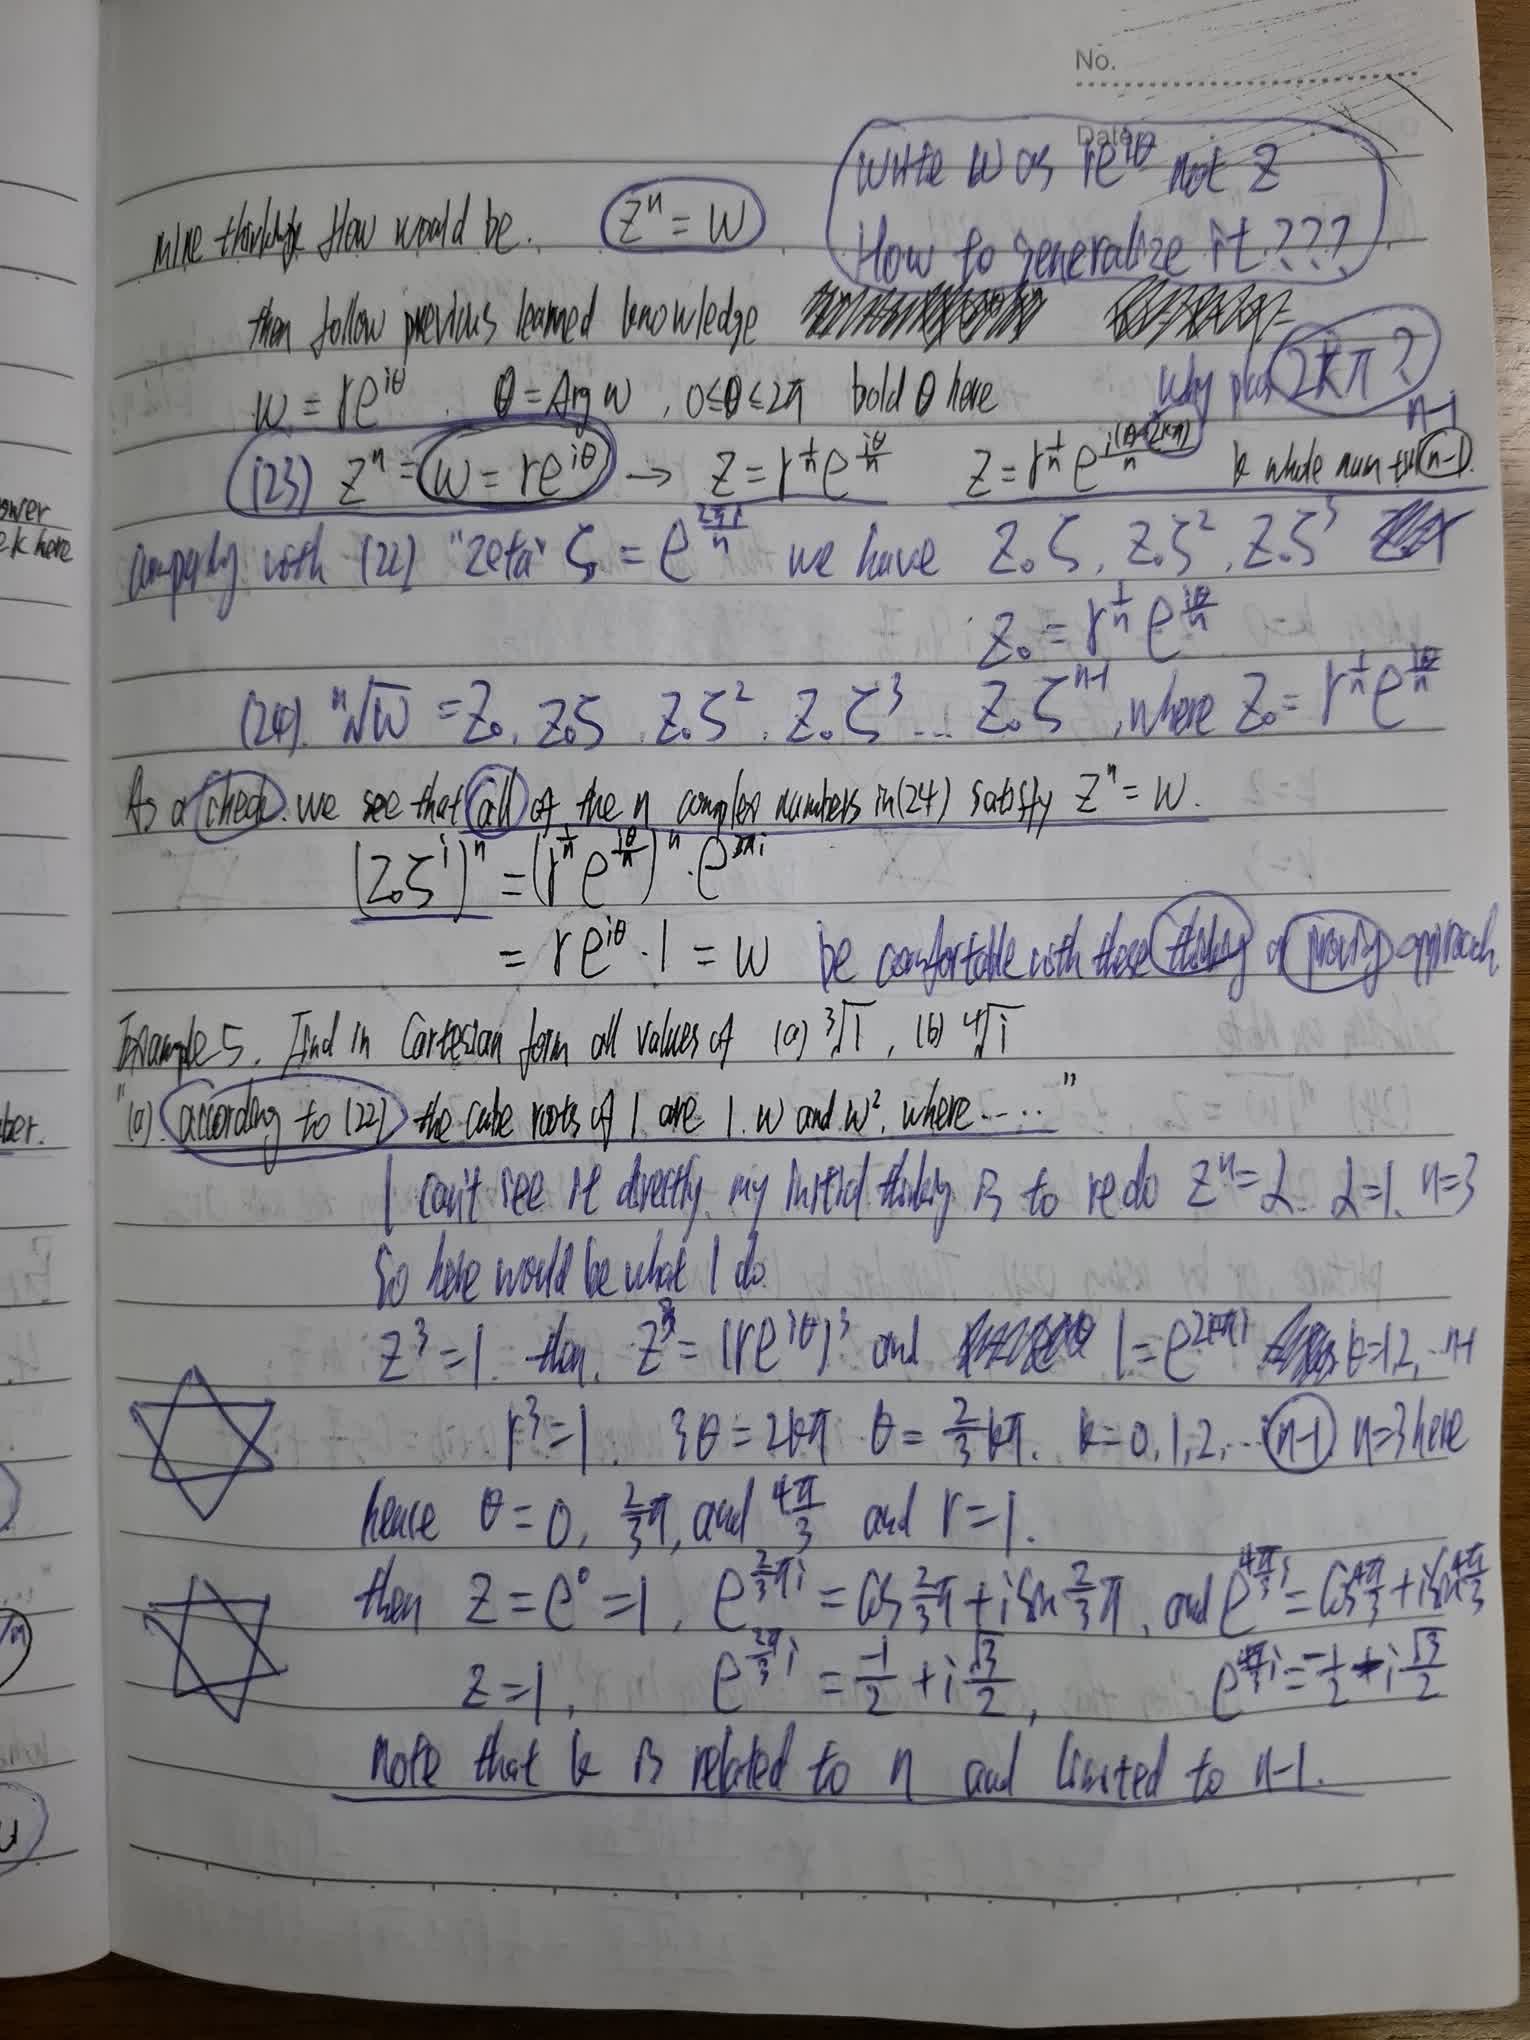 No.
Date
Write W as re^{iθ} not Z
How to generalize it???
mine thinking flow would be. Z^n = W
then follow previous learned knowledge
why plus 2kπ?
w = re^{iθ}. θ = Arg w, 0≤θ≤2π bold θ here
n-1
(23) Z^n = w = re^{iθ} → Z = r^{1/n} e^{iθ/n} Z = r^{1/n} e^{i(θ+2kπ)/n} k whole num (n-1).
with (22) "zeta" ζ = e^{2πi/n} we have Z₀ζ, Z₀ζ², Z₀ζ³
Z₀ = r^{1/n} e^{iθ/n}
(24). ⁿ√w = Z₀, Z₀ζ, Z₀ζ², Z₀ζ³ ... Z₀ζ^{n-1}, where Z₀ = r^{1/n} e^{iθ/n}
As a check. we see that all of the n complex numbers in (24) satisfy Z^n = W.
(Z₀ζ^i)^n = (r^{1/n} e^{iθ/n})^n · e^{2πi}
= re^{iθ} · 1 = w be comfortable with these thinking or proving approach.
Example 5. Find in Cartesian form all values of (a) ³√1, (b) ⁴√i
"(a). according to (22) the cube roots of 1 are 1. w and w², where ......"
I can't see it directly, my initial thinking is to redo Z^n = α. α=1, n=3
So here would be what I do.
Z³ = 1. then. Z³ = (re^{iθ})³ and 1 = e^{2kπi} k=1,2, ...n-1
r³ = 1. 3θ = 2kπ. θ = 2/3 kπ. k = 0, 1, 2, ... (n-1) n=3 here
hence θ = 0, 2/3 π, and 4π/3 and r = 1.
then Z = e⁰ = 1, e^{2/3 πi} = Cos 2/3 π + i Sin 2/3 π, and e^{4π/3 i} = Cos 4π/3 + i Sin 4π/3
Z = 1, e^{2π/3 i} = -1/2 + i √3/2, e^{4π/3 i} = -1/2 - i √3/2
note that k is related to n and limited to n-1.